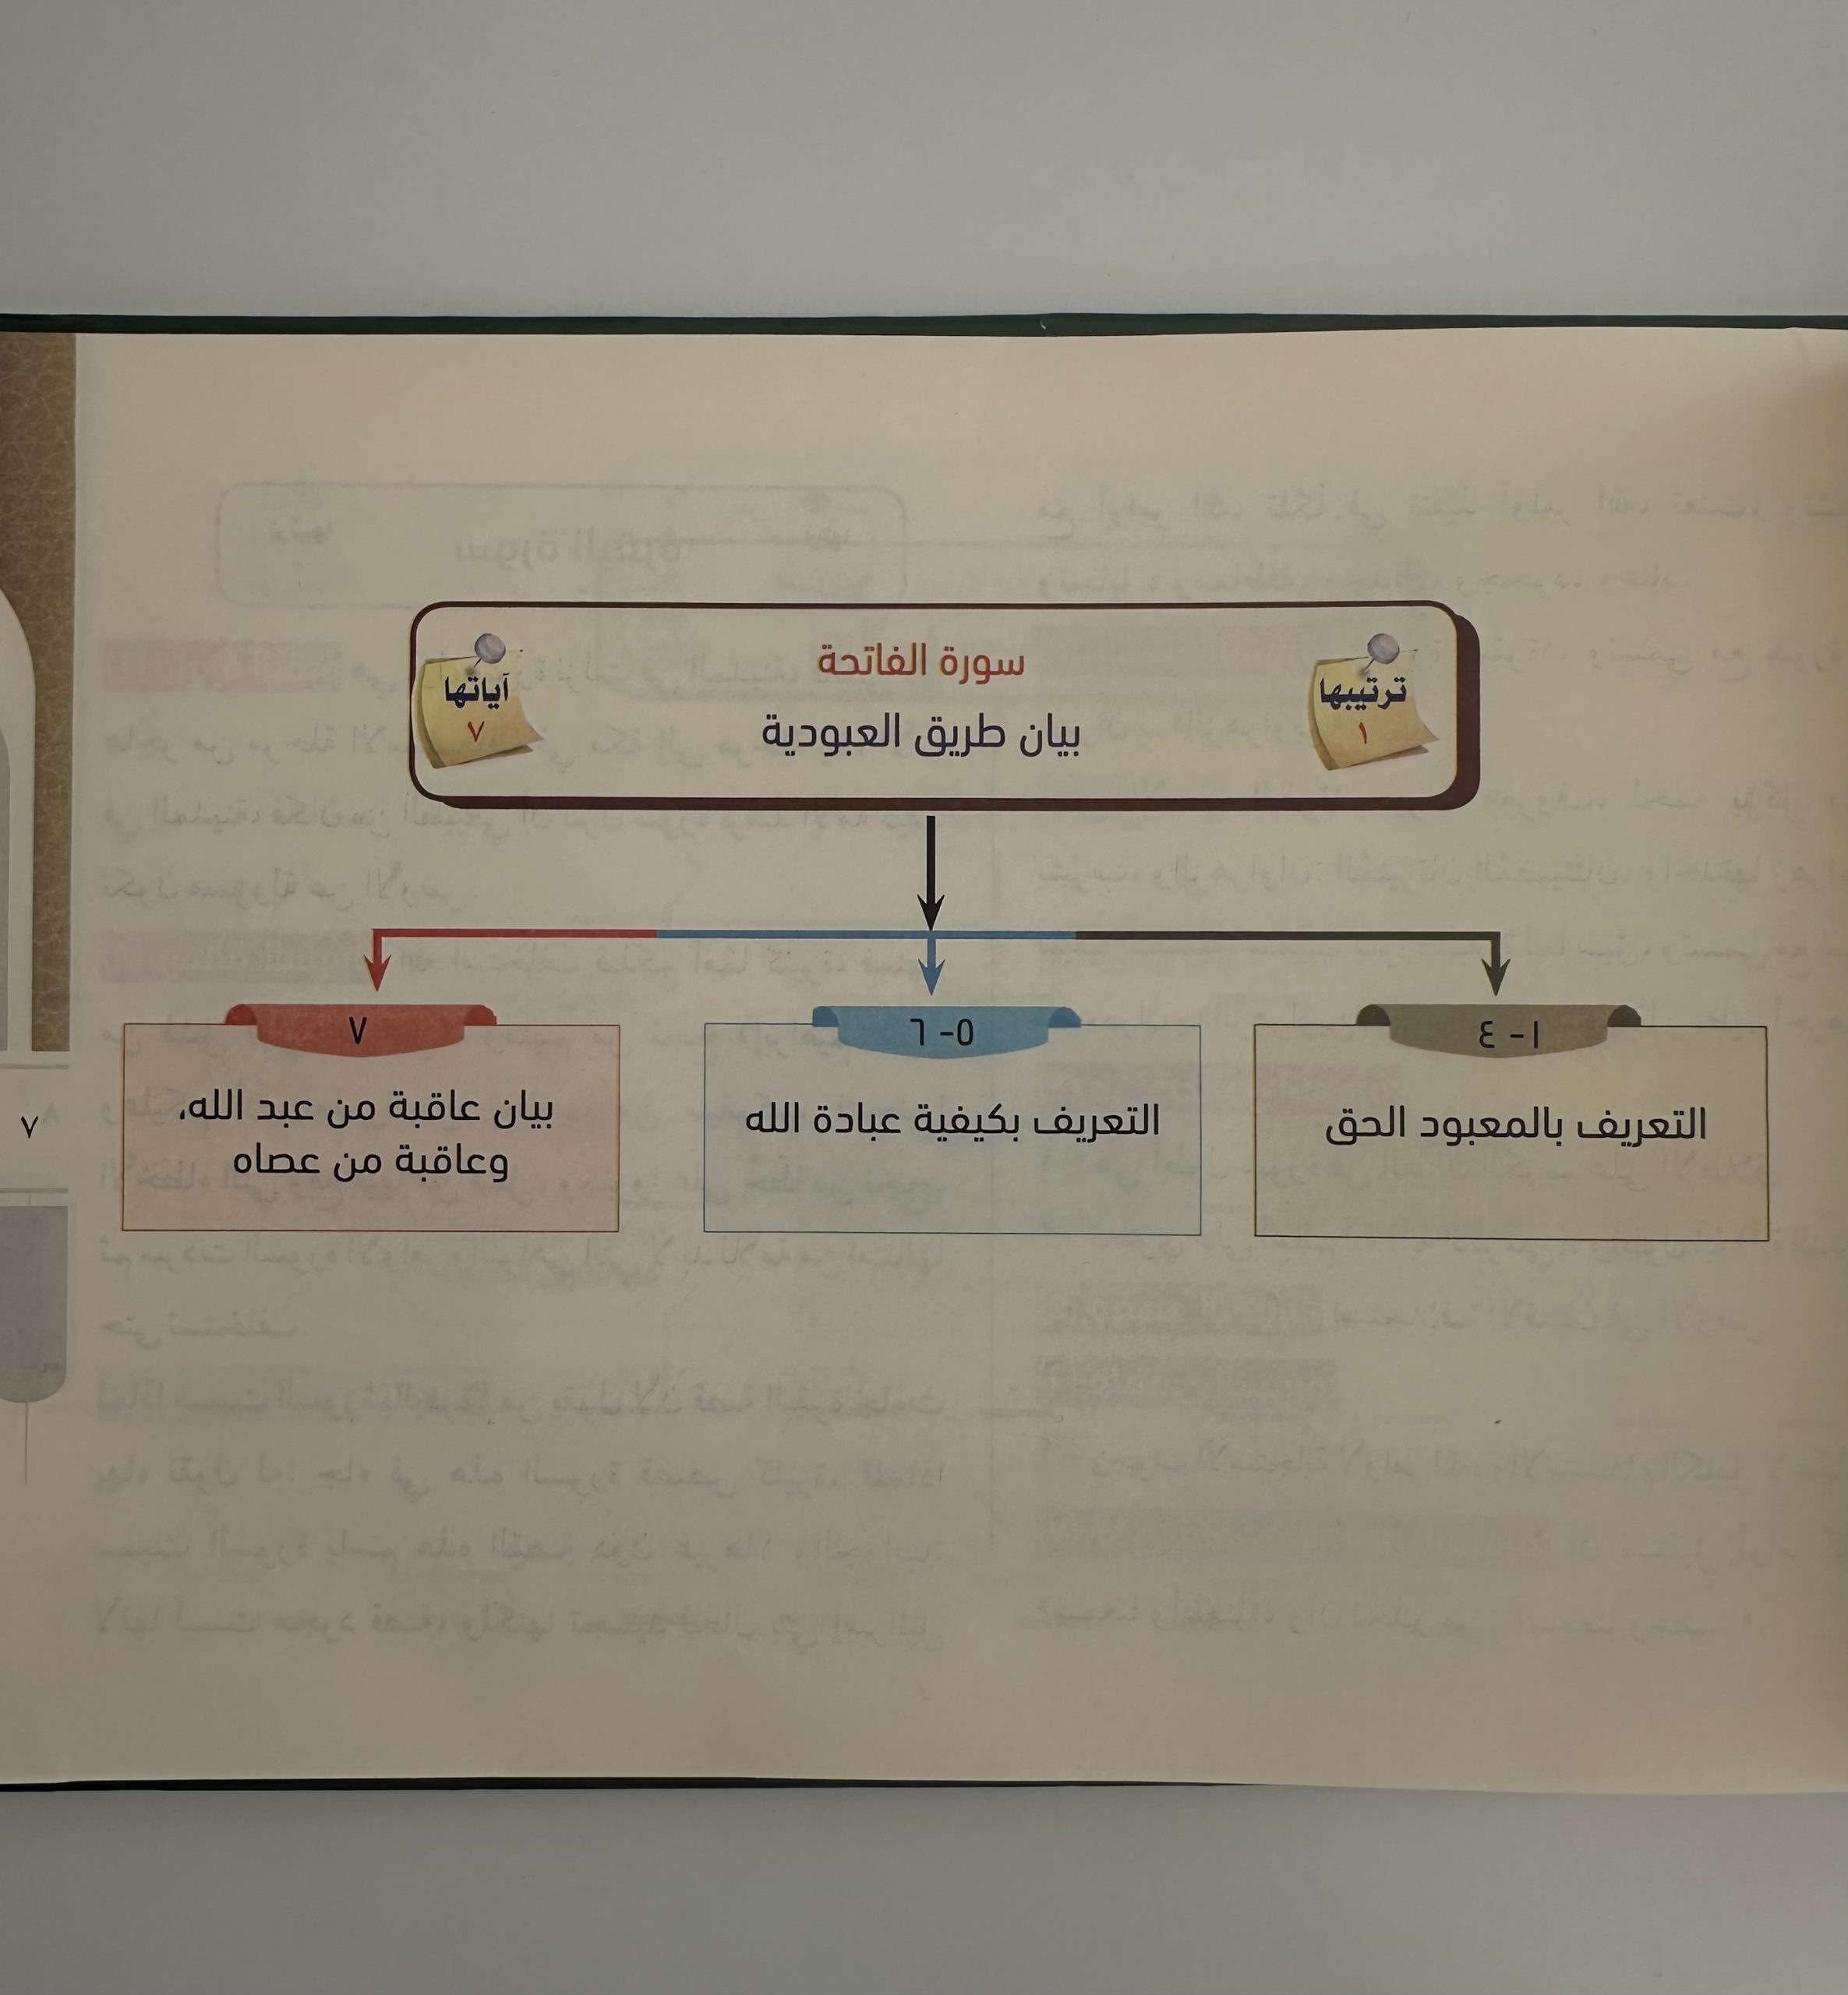 سورة الفاتحة
بيان طريق العبودية
ترتيبها
١
آياتها
٧
١- ٤
التعريف بالمعبود الحق
٥- ٦
التعريف بكيفية عبادة الله
٧
بيان عاقبة من عبد الله،
وعاقبة من عصاه
٧